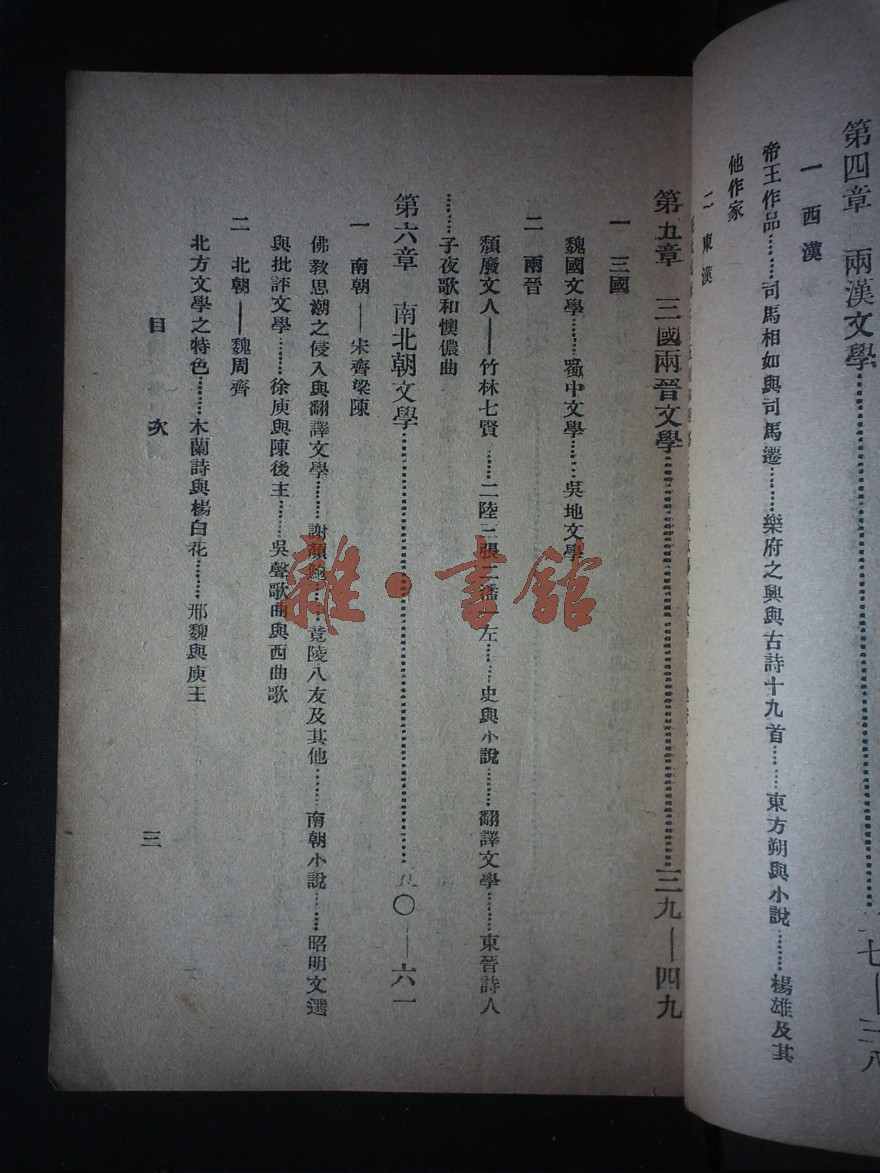 第四章　兩漢文學………七——三八
一　西漢
帝王作品………司馬相如與司馬遷………樂府之興與古詩十九首………東方朔與小說………楊雄及其
他作家
二　東漢
第五章　三國兩晉文學………三九——四九
一　三國
魏國文學………蜀中文學………吳地文學
二　兩晉
頹廢文人——竹林七賢………二陸三張二潘一左………史與小說………翻譯文學………東晉詩人
………子夜歌和懊儂曲
第六章　南北朝文學………五〇——六一
一　南朝——宋齊梁陳
佛教思潮之侵入與翻譯文學………謝顏鮑………竟陵八友及其他………南朝小說………昭明文選
與批評文學………徐庾與陳後主………吳聲歌曲與西曲歌
二　北朝——魏周齊
北方文學之特色………木蘭詩與楊白花………邢魏與庾王
目　次
三
雜·書館